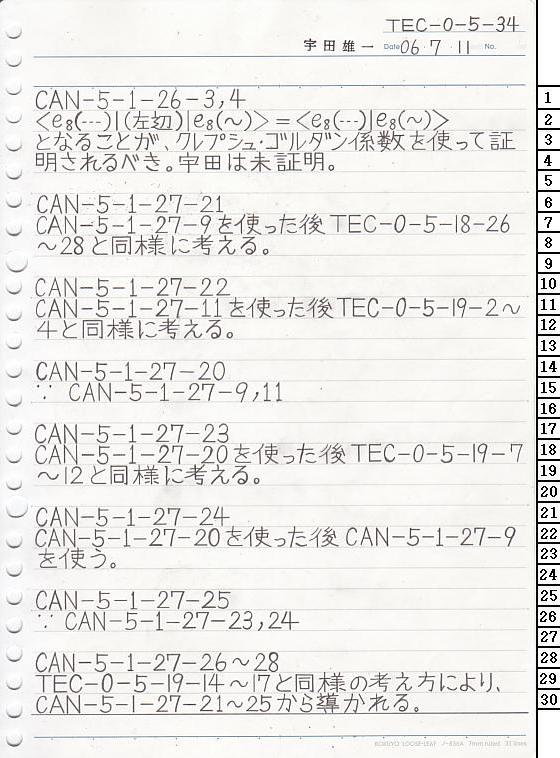 TEC-0-5-34
宇田雄一 Date 06・7・11 No.
CAN-5-1-26-3,4
<e₈(…)|(左辺)|e₈(〜)> = <e₈(…)|e₈(〜)>
となることが、クレプシュ・ゴルダン係数を使って証
明されるべき。宇田は未証明。
CAN-5-1-27-21
CAN-5-1-27-9を使った後TEC-0-5-18-26
〜28と同様に考える。
CAN-5-1-27-22
CAN-5-1-27-11を使った後TEC-0-5-19-2〜
4と同様に考える。
CAN-5-1-27-20
∵ CAN-5-1-27-9,11
CAN-5-1-27-23
CAN-5-1-27-20を使った後TEC-0-5-19-7
〜12と同様に考える。
CAN-5-1-27-24
CAN-5-1-27-20を使った後CAN-5-1-27-9
を使う。
CAN-5-1-27-25
∵ CAN-5-1-27-23,24
CAN-5-1-27-26〜28
TEC-0-5-19-14〜17と同様の考え方により、
CAN-5-1-27-21〜25から導かれる。
KOKUYO LOOSE-LEAF ノ-836A 7mm ruled 31 lines
1
2
3
4
5
6
7
8
9
10
11
12
13
14
15
16
17
18
19
20
21
22
23
24
25
26
27
28
29
30